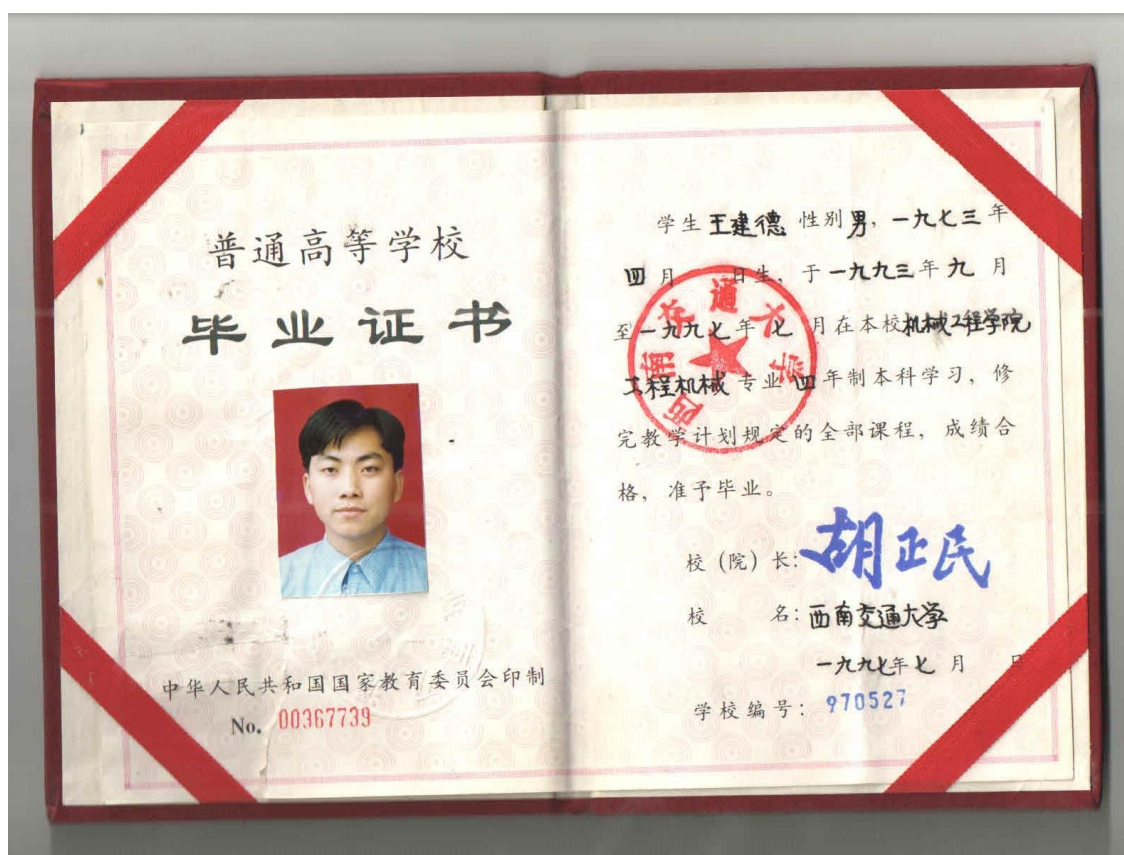 普通高等学校
毕业证书
中华人民共和国国家教育委员会印制
No. 00367739
学生王建德 性别男,一九七三年
四月 日生,于一九九三年九月
至一九九七年七月在本校机械工程学院
工程机械专业四年制本科学习,修
完教学计划规定的全部课程,成绩合
格,准予毕业。
西南交通大学
校(院)长:胡正民
校 名:西南交通大学
一九九七年七月 日
学校编号:970527